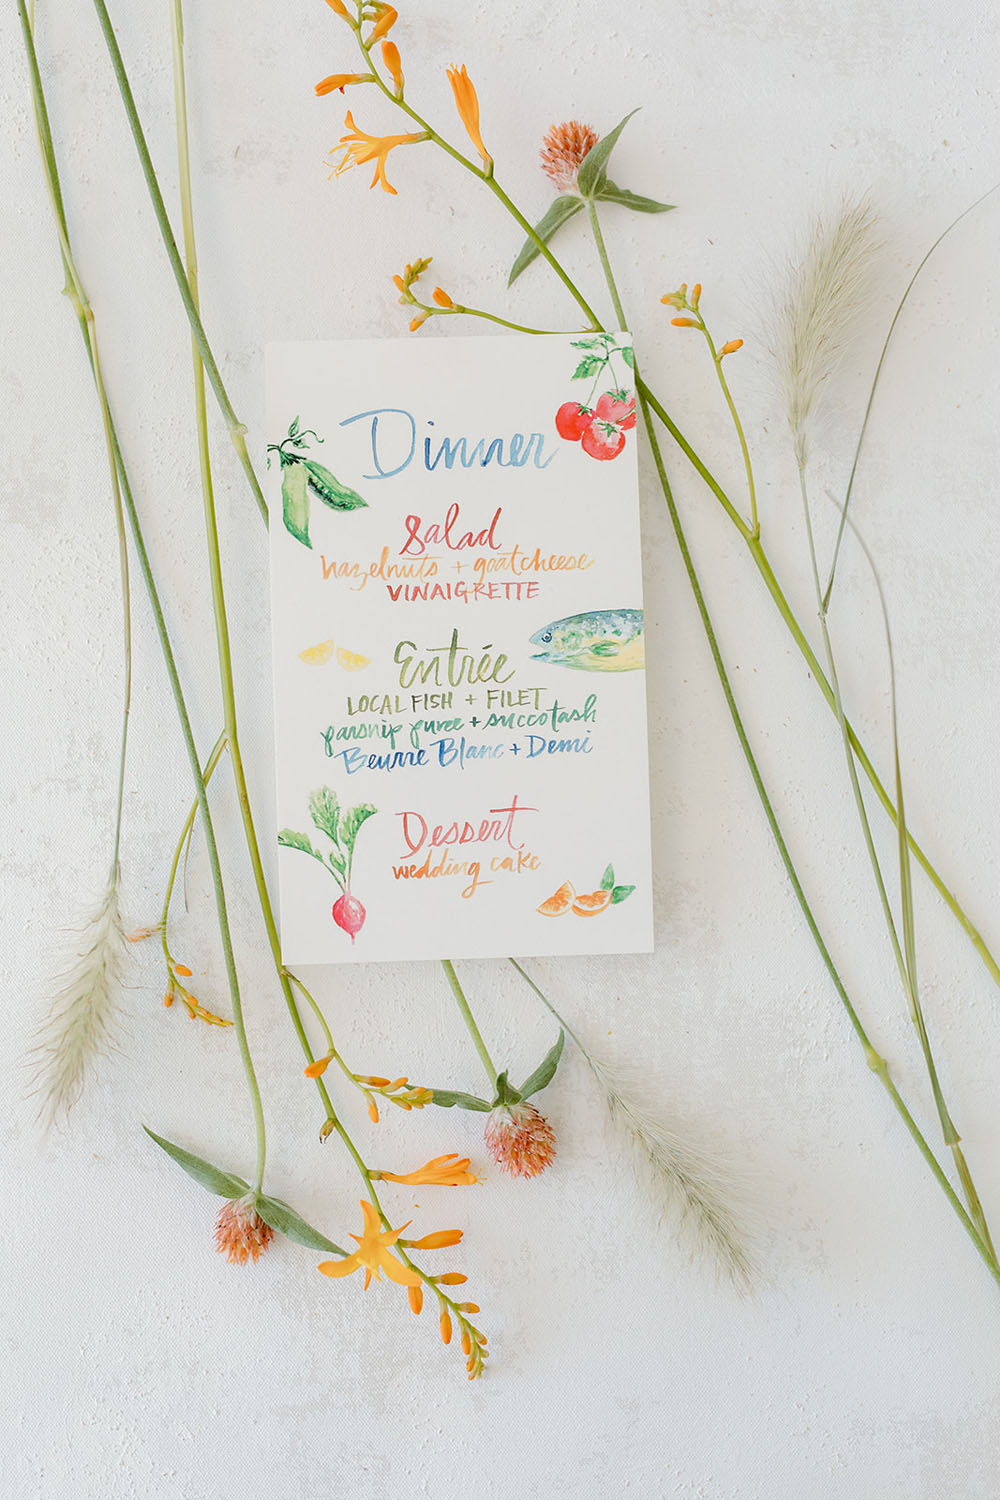 Dinner
Salad
hazelnuts + goat cheese
VINAIGRETTE
Entrée
LOCAL FISH + FILET
parsnip puree + succotash
Beurre Blanc + Demi
Dessert
wedding cake